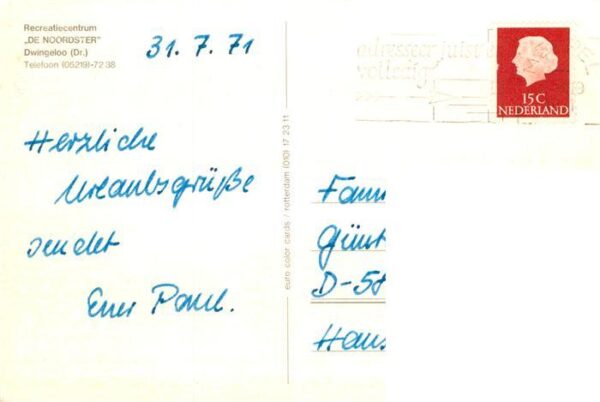 Recreatiecentrum
„DE NOORDSTER"
Dwingeloo (Dr.)
Telefoon (05219)-72 38
31. 7. 71
Herzliche
Urlaubsgrüße
sendet
Euer Paul.
euro color cards / rotterdam (010) 17 23 11
adresseer juist en
volledig
15 C
NEDERLAND
Fam
Günt
D-58
Han